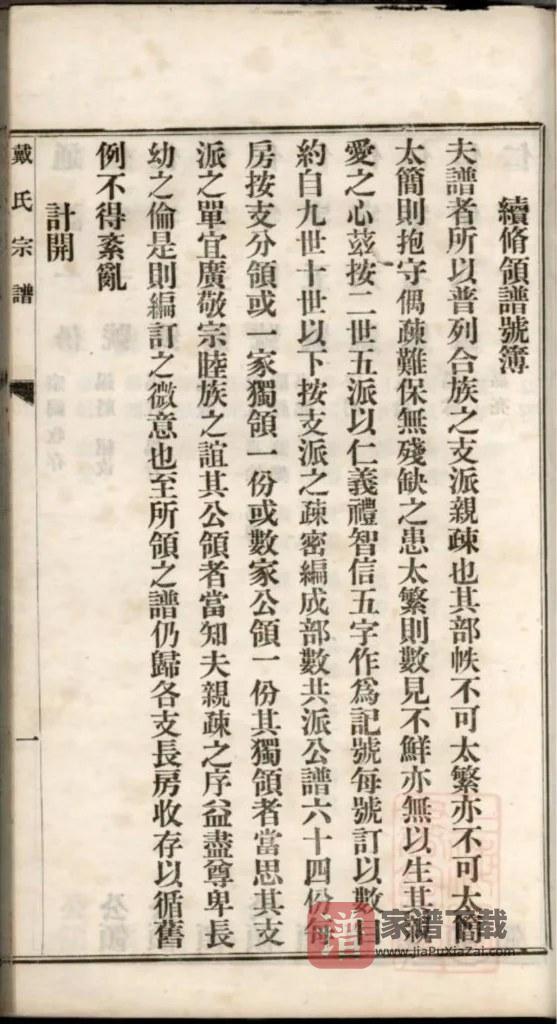 續脩領譜號簿
夫譜者所以普列合族之支派親疎也其部帙不可太繁亦不可太簡
太簡則抱守偶疎難保無殘缺之患太繁則數見不鮮亦無以生其親
愛之心茲按二世五派以仁義禮智信五字作爲記號每號訂以數目
約自九世十世以下按支派之疎密編成部數共派公譜六十四份每
房按支分領或一家獨領一份或數家公領一份其獨領者當思其支
派之單宜廣敬宗睦族之誼其公領者當知夫親疎之序益盡尊卑長
幼之倫是則編訂之微意也至所領之譜仍歸各支長房收存以循舊
例不得紊亂
計開
戴氏宗譜
一
譜 家谱下载
www.JiaPuXiaZai.com